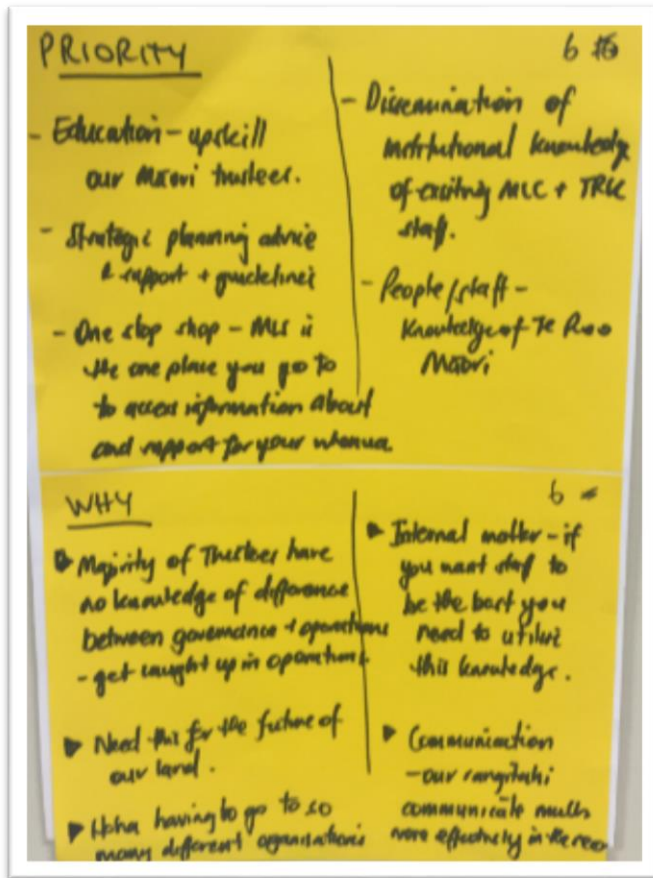 PRIORITY
6
- Education - upskill
our Maori trustees.
- Strategic planning advice
& support + guidelines
- One stop shop - MLS is
the one place you go to
to access information about
and support for your whenua
- Dissemination of
institutional knowledge
of existing MLC + TRLC
staff.
- People/staff -
knowledge of Te Reo
Maori
WHY
6
Majority of Trustees have
no knowledge of difference
between governance + operations
- get caught up in operations.
Need this for the future of
our land.
Hoha having to go to so
many different organisations
Internal matter - if
you want staff to
be the best you
need to utilise
this knowledge.
Communication
- our rangatahi
communicate much
more effectively in te reo